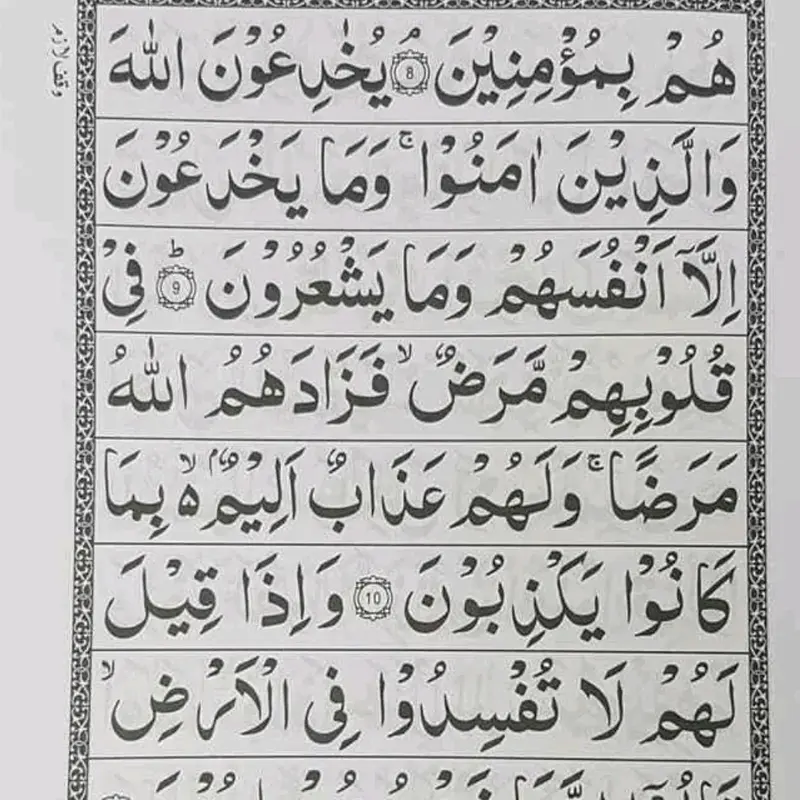 وقف لازم
هُمْ بِمُؤْمِنِيْنَ ۘ 8 يُخٰدِعُوْنَ اللّٰهَ
وَالَّذِيْنَ اٰمَنُوْا ۚ وَمَا يَخْدَعُوْنَ
اِلَّاۤ اَنْفُسَهُمْ وَمَا يَشْعُرُوْنَ ؕ 9 فِيْ
قُلُوْبِهِمْ مَّرَضٌ ۙ فَزَادَهُمُ اللّٰهُ
مَرَضًا ۚ وَلَهُمْ عَذَابٌ اَلِيْمٌۢ ۙ۵ بِمَا
كَانُوْا يَكْذِبُوْنَ 10 وَاِذَا قِيْلَ
لَهُمْ لَا تُفْسِدُوْا فِى الْاَرْضِ ۙ